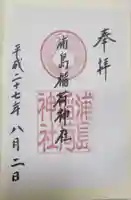 奉拝
浦島稲荷神社
平成二十七年八月二日
浦島
稲荷
神社